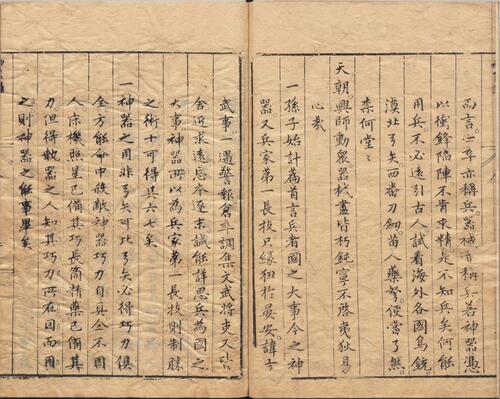 而言二字亦稱兵器械亦稱兵若神器憑
以衝鋒陷陣不肯求精是不知兵矣何能
用兵不必遠引古人試看海外各國鳥銃
漠北弓矢西番刀劍苗人藥弩使當了然
柰何堂堂
天朝興師動眾器械盡皆朽鈍寧不啓夷狄易
心哉
一孫子始計篇首言兵者國之大事今之神
器又兵家第一長技只緣狃於晏安諱言
武事一遇警報倉卒調集文武將吏又皆
舍近求遠忘本逐末誠能詳思兵為國之
大事神器所以為兵家第一長技則制勝
之術十可得其六七矣
一神器之用非弓矢可比弓矢必得巧力俱
全方能命中殺敵神器巧力自具全不因
人床機照星已備其巧長筒精藥已備其
力但得教器之人知其巧力所在因而用
之則神器之能事畢矣